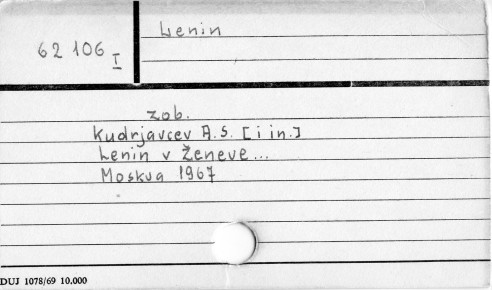 Lenin
62 106 I
zob.
Kudrjavcev A.S. [i in.]
Lenin v Ženeve...
Moskva 1967
DUJ 1078/69 10.000